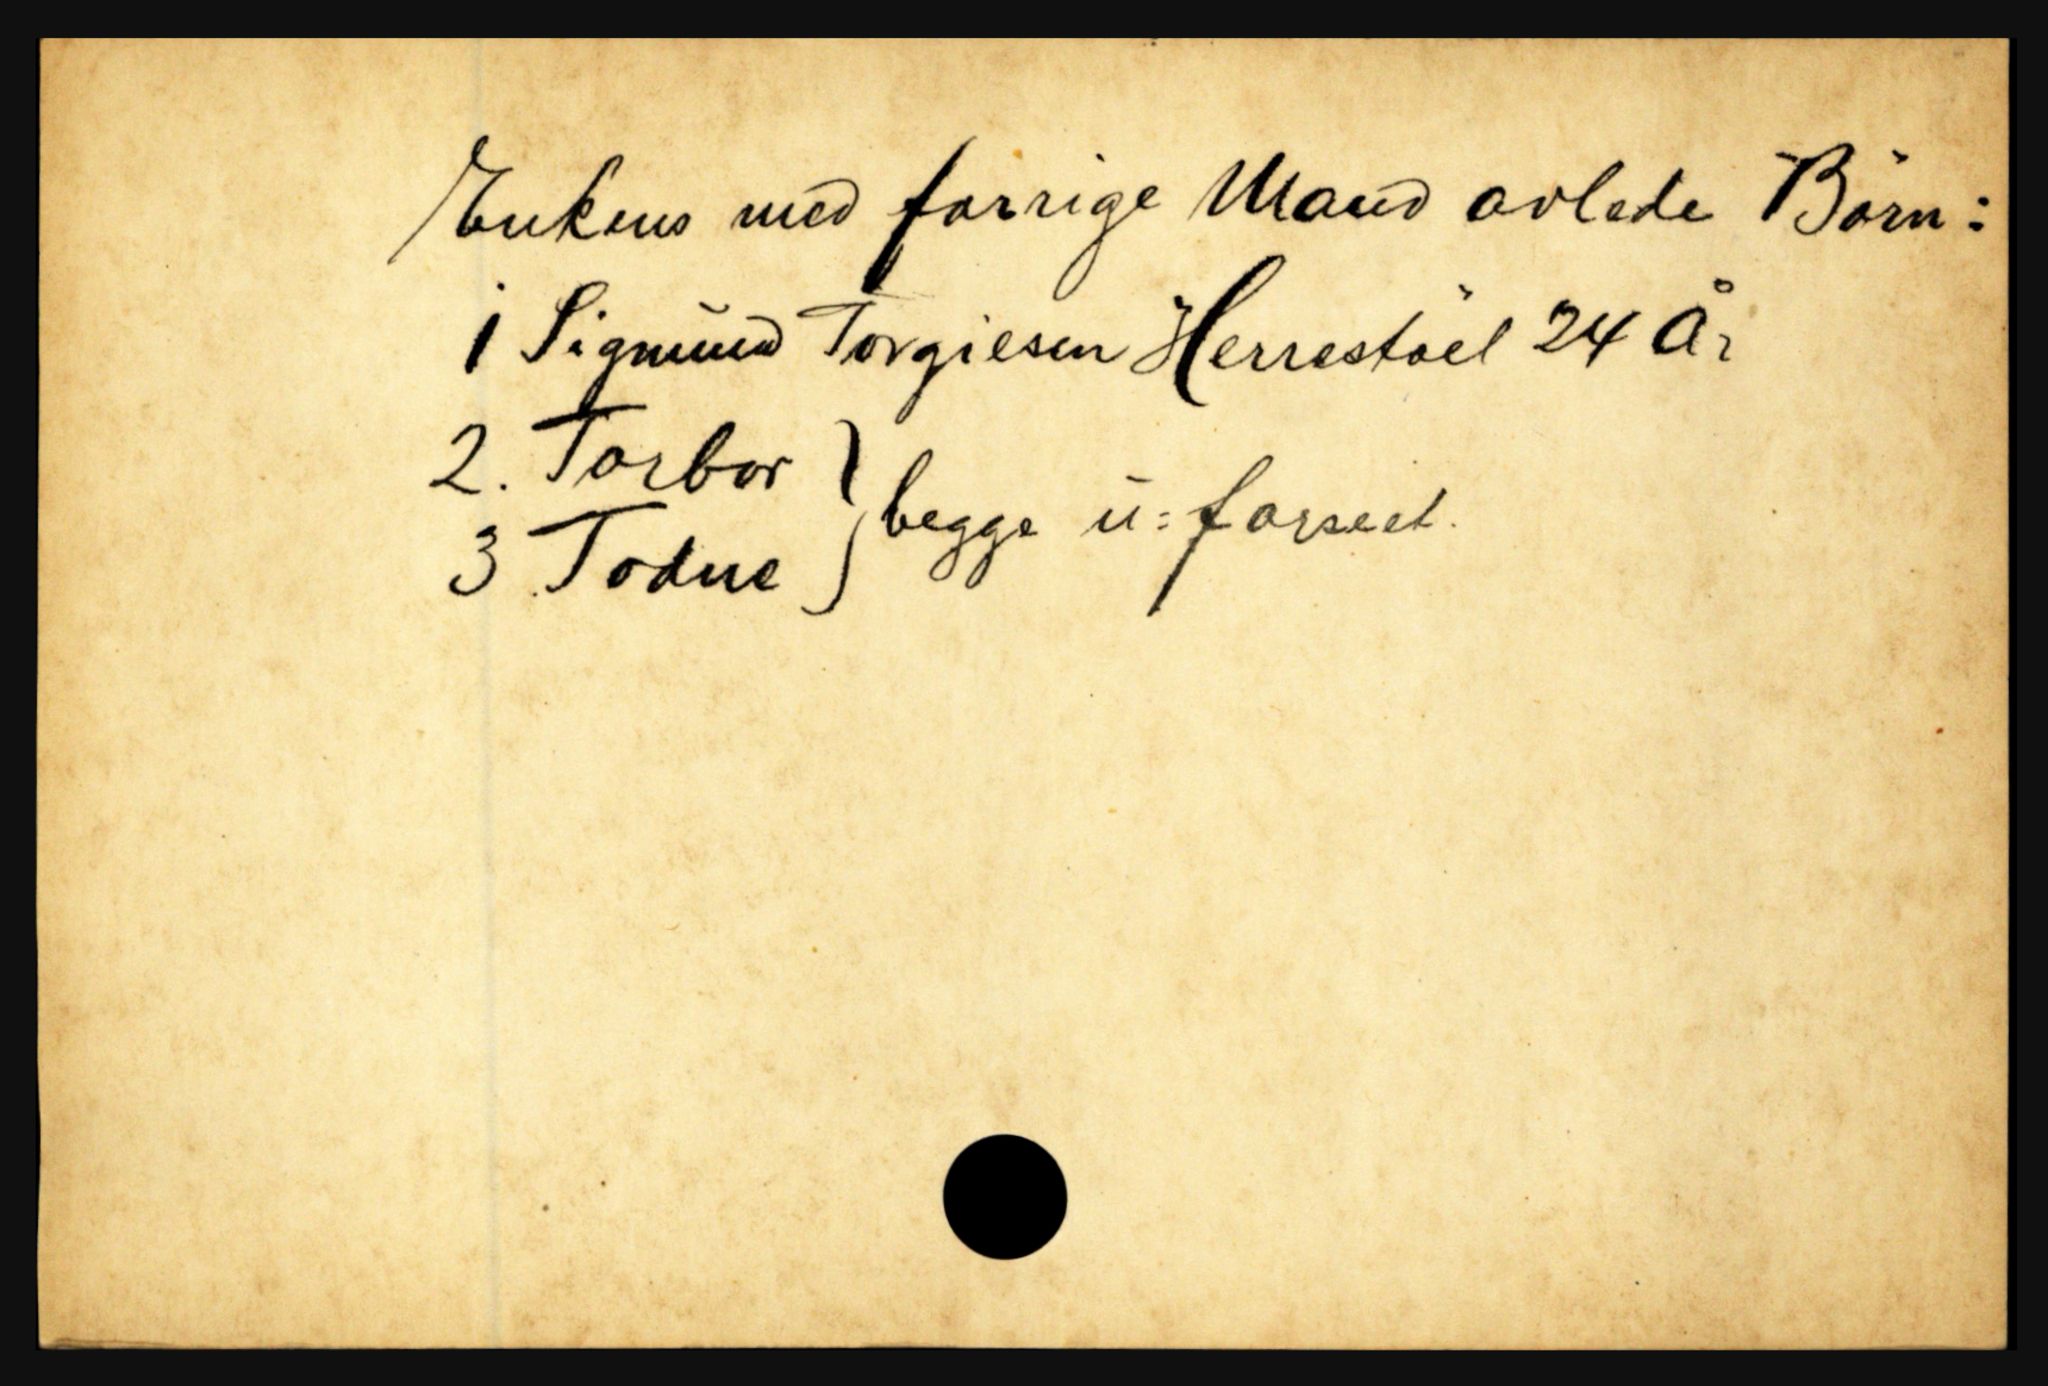 Enkens med forrige Mand avlede Börn:
1 Sigmund Torgiesen Herrestöel 24 År
2. Torbor } begge u=forseet.
3 Todne